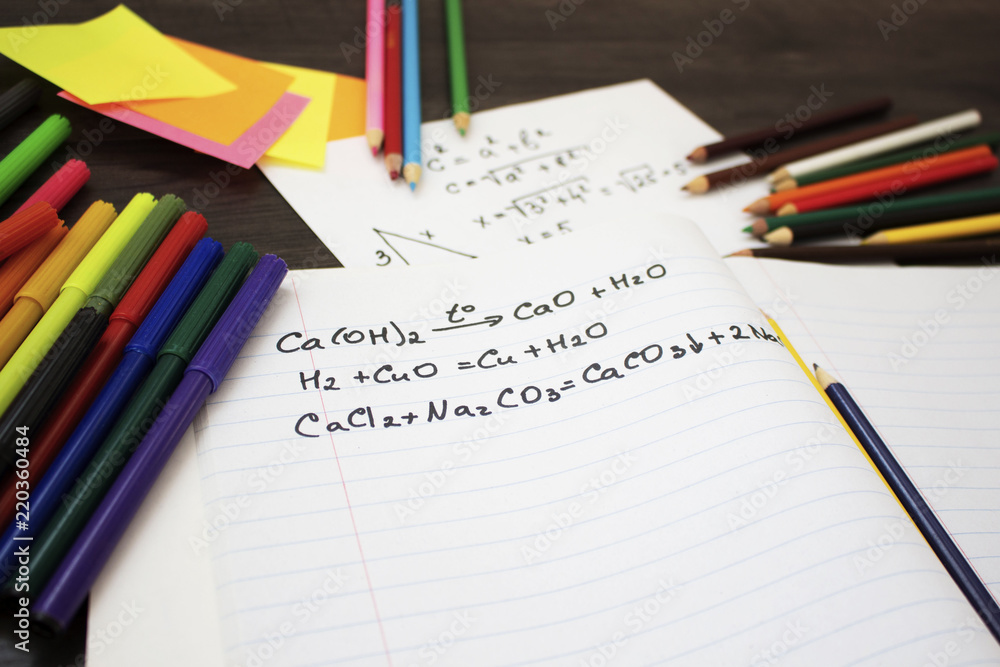 c² = a² + b²
c = √a² + b²
x = √3² + 4² = √25 = 5
x = 5
3
x
Ca(OH)2 t° → CaO + H2O
H2 + CuO = Cu + H2O
CaCl2 + Na2CO3 = CaCO3↓ + 2Na
Adobe Stock | #220360484